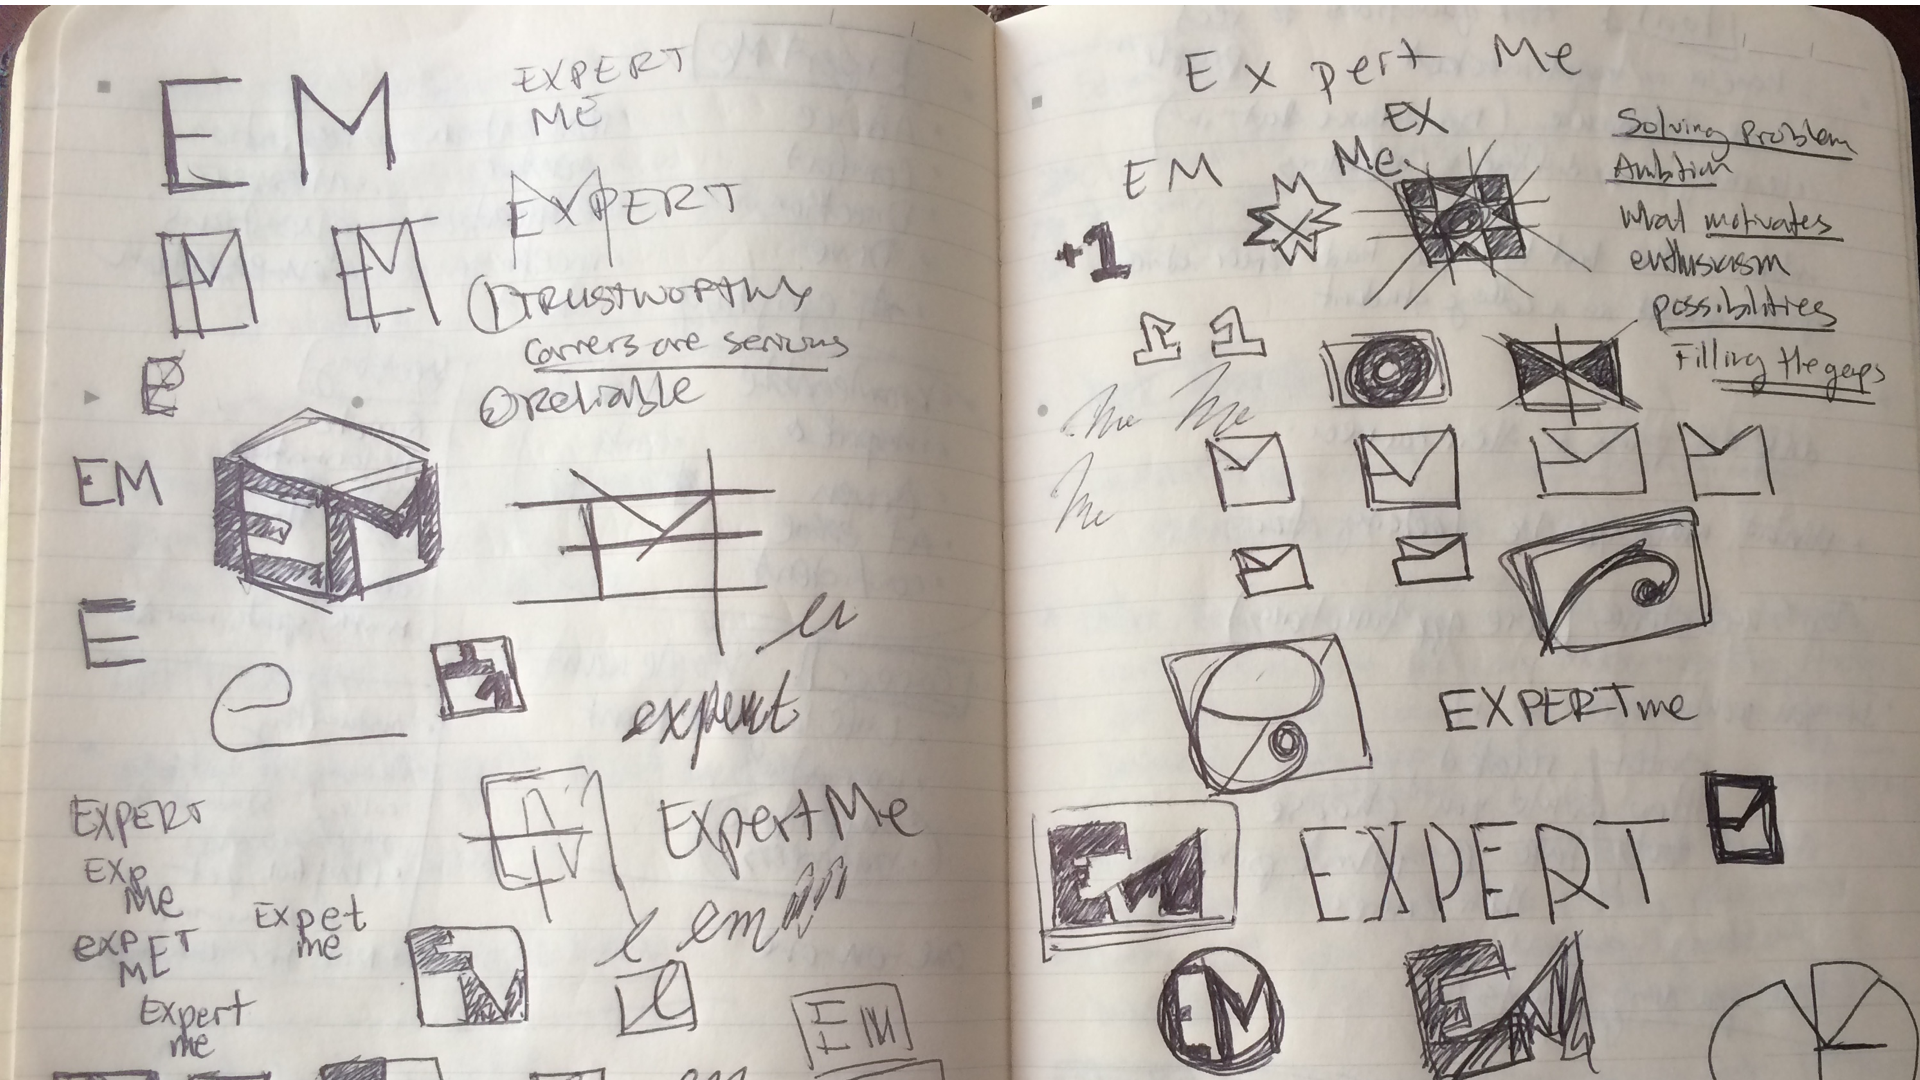 EM
EXPERT
ME
EXPERT
EM
EM
① TRUSTWORTHY
careers are serious
② Reliable
E
EM
EM
E
e
expert
EXPERT
ExpertMe
EXP
Me
em
Expet
me
exp ET
ME
Expert
me
EM
e
EM
Expert Me
EX
Me
EM
+1
1 1
Me Me
Me
Solving problem
Ambition
what motivates
enthusiasm
possibilities
Filling the gaps
EXPERTme
EM
EXPERT
EM
EM